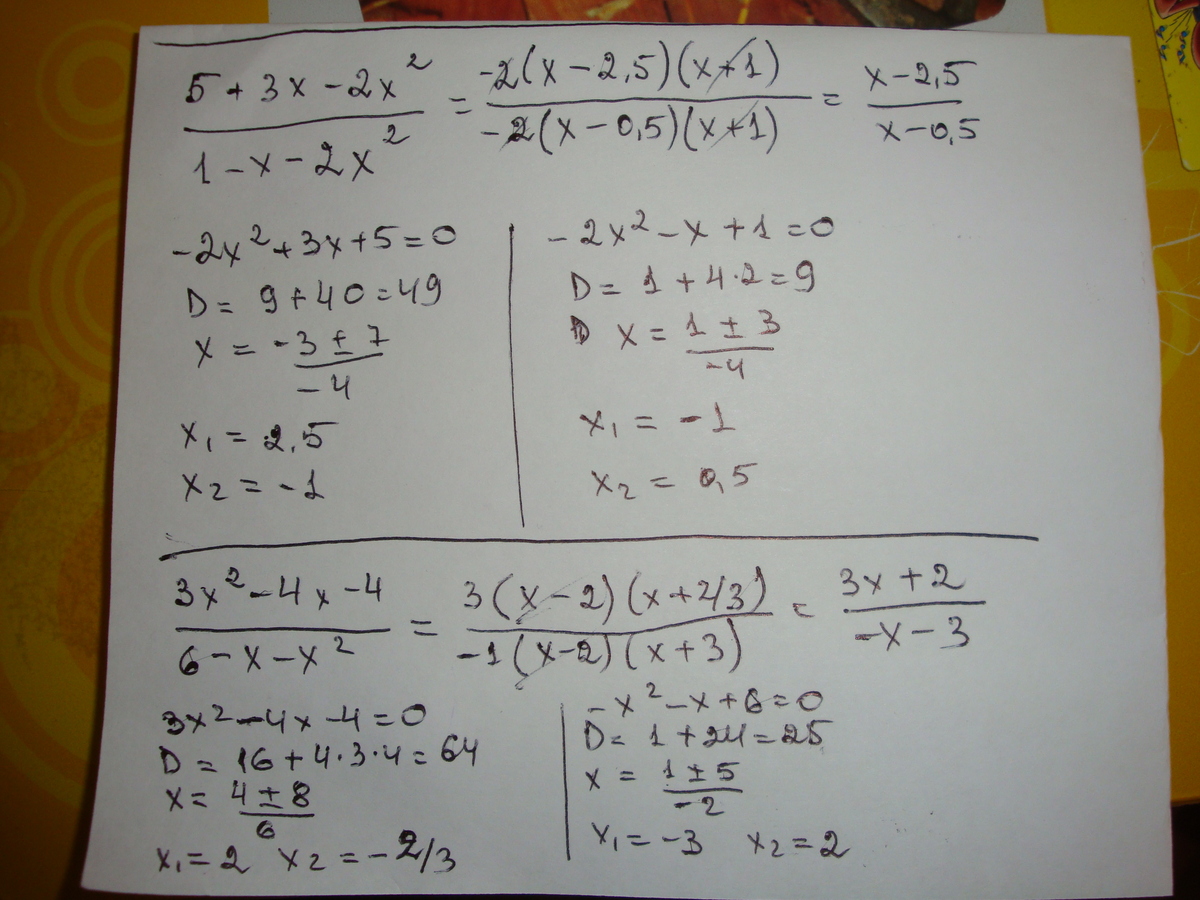 5 + 3x - 2x² / 1 - x - 2x² = -2(x - 2,5)(x+1) / -2(x - 0,5)(x+1) = x - 2,5 / x - 0,5
-2x² + 3x + 5 = 0
D = 9 + 40 = 49
x = -3 ± 7 / -4
x₁ = 2,5
x₂ = -1
-2x² - x + 1 = 0
D = 1 + 4·2 = 9
x = 1 ± 3 / -4
x₁ = -1
x₂ = 0,5
3x² - 4x - 4 / 6 - x - x² = 3(x - 2)(x + 2/3) / -1(x - 2)(x + 3) = 3x + 2 / -x - 3
3x² - 4x - 4 = 0
D = 16 + 4·3·4 = 64
x = 4 ± 8 / 6
x₁ = 2 x₂ = -2/3
-x² - x + 6 = 0
D = 1 + 24 = 25
x = 1 ± 5 / -2
x₁ = -3 x₂ = 2